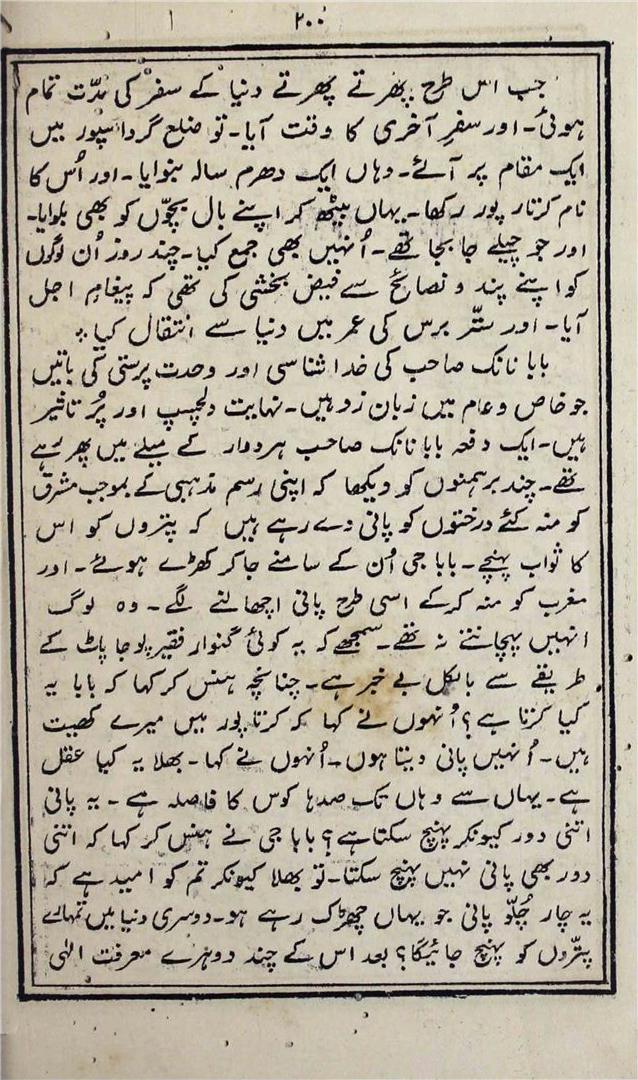 ۲۰۰
جب اس طرح پھرتے پھرتے دنیا کے سفر کی مدّت تمام
ہوئی۔ اور سفرِ آخری کا وقت آیا۔ تو ضلع گرداسپور میں
ایک مقام پر آئے۔ وہاں ایک دھرم سالہ بنوایا۔ اور اُس کا
نام کرتار پور رکھا۔ یہاں بیٹھ کر اپنے بال بچّوں کو بھی بلوایا۔
اور جو چیلے جا بجا تھے۔ اُنہیں بھی جمع کیا۔ چند روز اُن لوگوں
کو اپنے پند و نصائح سے فیض بخشی کی تھی کہ پیغامِ اجل
آیا۔ اور ستّر برس کی عمر میں دنیا سے انتقال کیا ٭
بابا نانک صاحب کی خدا شناسی اور وحدت پرستی کی باتیں
جو خاص و عام میں زبان زد ہیں۔ نہایت دلچسپ اور پُر تاثیر
ہیں۔ ایک دفعہ بابا نانک صاحب ہردوار کے میلے میں پھر رہے
تھے۔ چند برہمنوں کو دیکھا کہ اپنی رسم مذہبی کے بموجب مشرق
کو منہ کئے درختوں کو پانی دے رہے ہیں کہ پتروں کو اس
کا ثواب پہنچے۔ بابا جی اُن کے سامنے جا کر کھڑے ہوئے۔ اور
مغرب کو منہ کرکے اسی طرح پانی اچھالنے لگے۔ وہ لوگ
انہیں پہچانتے نہ تھے۔ سمجھے کہ یہ کوئی گنوار فقیر پوجا پاٹ کے
طریقے سے بالکل بے خبر ہے۔ چنانچہ ہنس کر کہا کہ بابا یہ
کیا کرتا ہے؟ اُنہوں نے کہا کہ کرتا پور میں میرے کھیت
ہیں۔ اُنہیں پانی دیتا ہوں۔ اُنہوں نے کہا۔ بھلا یہ کیا عقل
ہے۔ یہاں سے وہاں تک صدہا کوس کا فاصلہ ہے۔ یہ پانی
اتنی دور کیونکر پہنچ سکتا ہے؟ بابا جی نے ہنس کر کہا کہ اتنی
دور بھی پانی نہیں پہنچ سکتا۔ تو بھلا کیونکر تم کو امید ہے کہ
یہ چار چُلّو پانی جو یہاں چھڑک رہے ہو۔ دوسری دنیا میں تمہارے
پتّروں کو پہنچ جائیگا؟ بعد اس کے چند دوہرے معرفت الہٰی